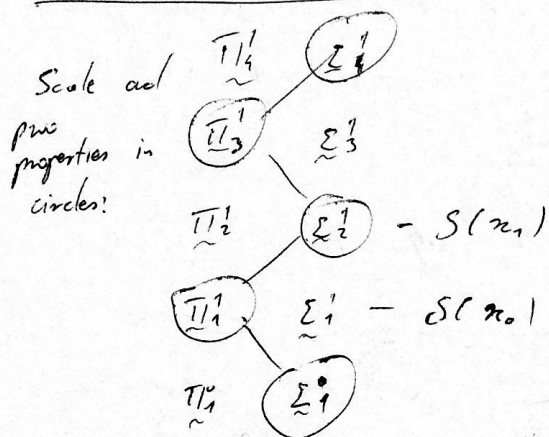 Scale and
pwo
properties in
circles:
Π¹₄ Σ¹₄
Π¹₃ Σ¹₃
Π¹₂ Σ¹₂ - S(ℵ₁)
Π¹₁ Σ¹₁ - S(ℵ₀)
Π⁰₁ Σ⁰₁